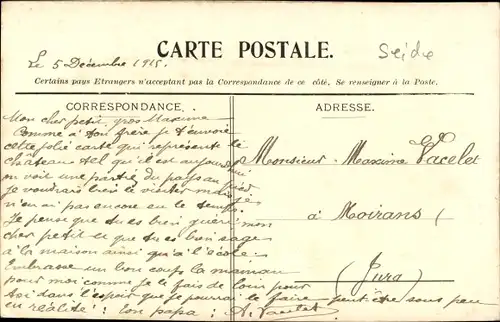 Le 5 Décembre 1915.
CARTE POSTALE.
Seide
Certains pays Etrangers n'acceptant pas la Correspondance de ce côté. Se renseigner à la Poste.
CORRESPONDANCE.
Mon cher petit gros Maxime
Comme à ton frère je t'envoie
cette jolie carte qui représente le
château tel qu'il est aujourd'hui
on voit une partie du pays au pied
je voudrais bien le visiter mais je
n'en ai pas encore eu le temps.
Je pense que tu es bien guéri mon
cher petit et que tu es bien sage
à la maison ainsi qu'à l'école.
Embrasse un bon coup la maman
pour moi comme je le fais de loin pour
toi dans l'espoir que je pourrai le faire peut-être sous peu
en réalité : ton papa : A. Vacelet
ADRESSE.
Monsieur Maxime Vacelet
à Moirans
(Jura)